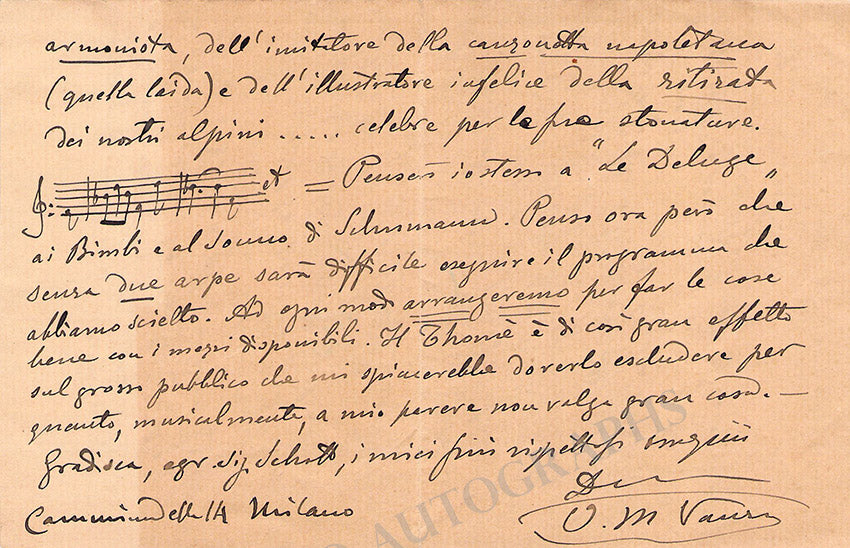 armonista, dell'imitatore della canzonetta napoletana
(quella laida) e dell'illustratore infelice della ritirata
dei nostri alpini ..... celebre per le sue stonature.
= Penserò io stesso a "Le Deluge"
ai Bimbi e al Sonno di Schumann. Penso ora però che
senza due arpe sarà difficile eseguire il programma che
abbiamo scielto. Ad ogni modo arrangeremo per far le cose
bene con i mezzi disponibili. Il Thomè è di così gran effetto
sul grosso pubblico che mi spiacerebbe doverlo escludere per
quanto, musicalmente, a mio parere non valga gran cosa. —
Gradisca, egr. Sig. Schott, i miei più rispettosi
Milano
V. M. Vanzo
AUTOGRAPHS